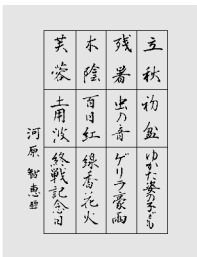 立秋 初盆 ゆかた姿の子ども
残暑 虫の音 ゲリラ豪雨
木陰 百日紅 線香花火
芙蓉 土用波 終戦記念日
河原 智恵